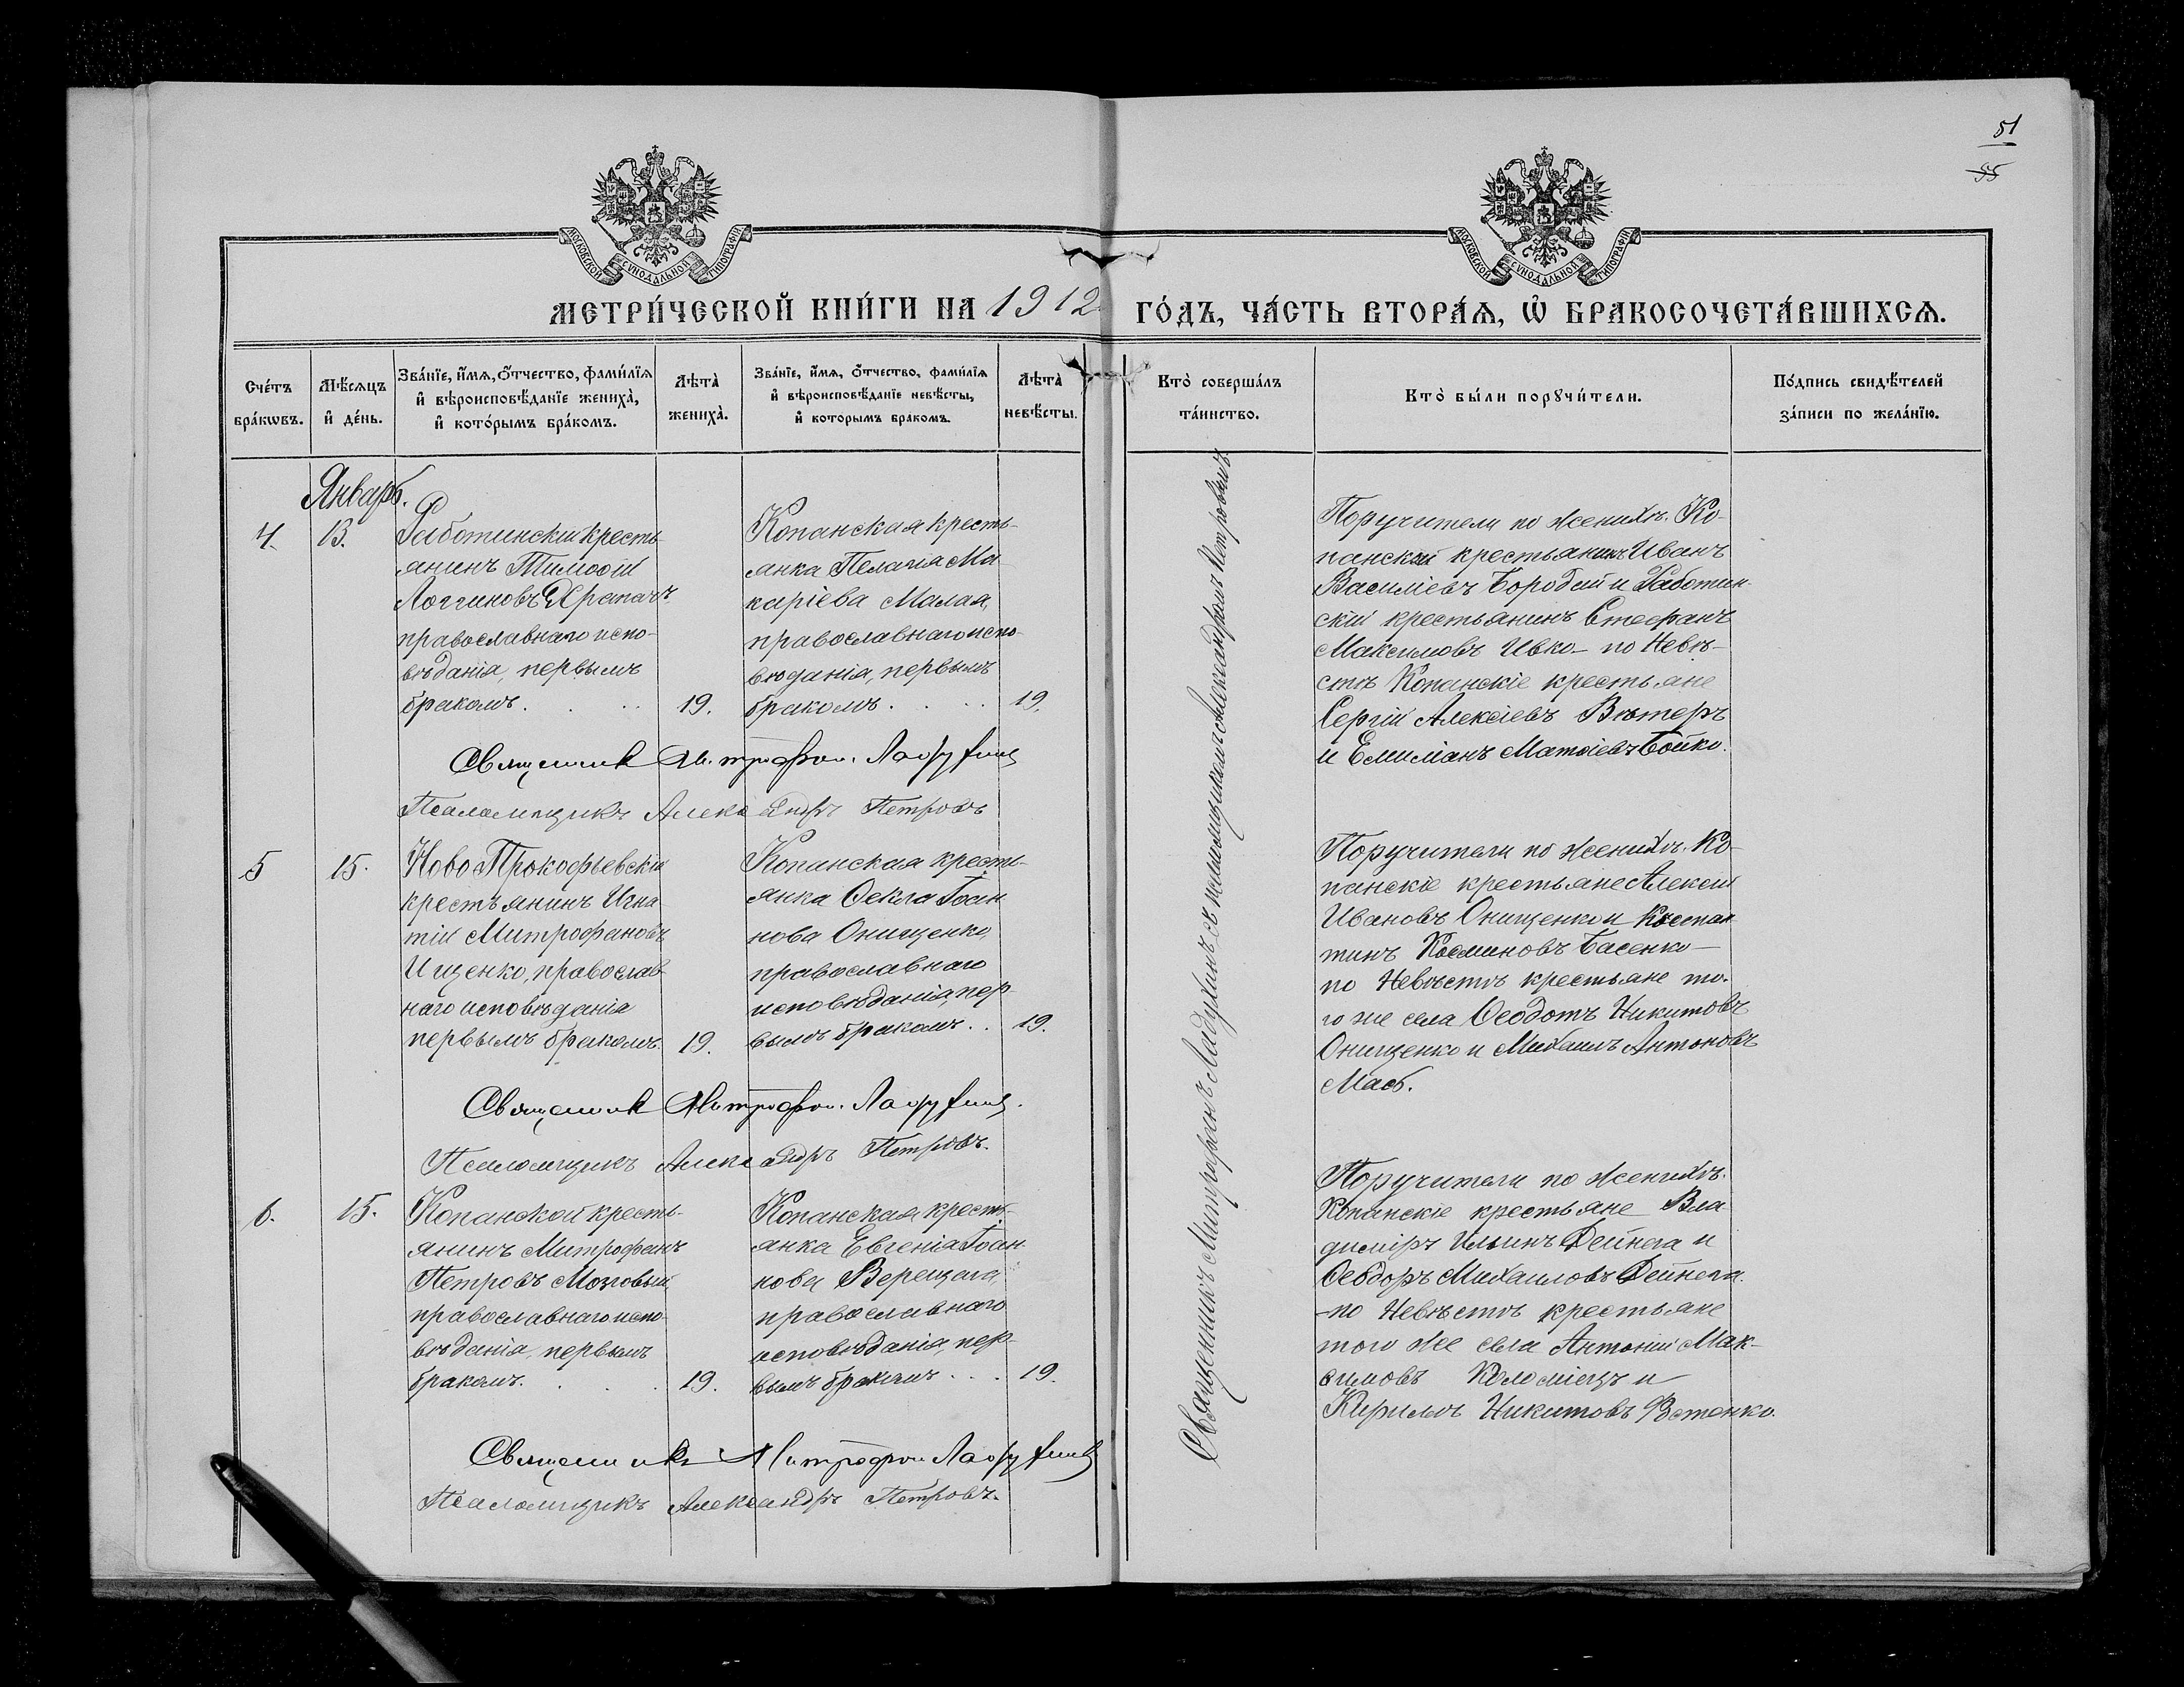 51
55
МОСКОВСКОЙ СѴНОДАЛЬНОЙ ТИПОГРАФІИ
МОСКОВСКОЙ СѴНОДАЛЬНОЙ ТИПОГРАФІИ
МЕТРИ́ЧЕСКОЙ КНИ́ГИ НА 1912 ГО́ДЪ, ЧА́СТЬ ВТОРА́Ѧ, Ѡ҆ БРАКОСОЧЕТА́ВШИХСѦ.
Сче́тъ
бра́кѡвъ.
Мѣ́сѧцъ
и҆ де́нь.
Зва́нїе, и҆́мѧ, ѻ҆́тчество, фами́лїѧ
и҆ вѣроисповѣ́данїе жениха̀,
и҆ кото́рымъ бра́комъ.
Лѣта̀
жениха̀.
Зва́нїе, и҆́мѧ, ѻ҆́тчество, фами́лїѧ
и҆ вѣроисповѣ́данїе невѣ́сты,
и҆ которымъ бракомъ.
Лѣта̀
невѣ́сты.
Кто̀ соверша́лъ
та́инство.
Кто̀ бы́ли порꙋчи́тели.
По́дпись свидѣ́телей
за́писи по жела́нїю.
Январь.
4.
13.
Работинскій кресть-
янинъ Тимоѳій
Логгиновъ Храпачъ
православнаго испо-
вѣданія, первымъ
бракомъ.
19.
Копанская кресть-
янка Пелагія Ма
каріева Малая,
православнаго испо-
вѣданія, первымъ
бракомъ.
19.
Священникъ Митрофан. Ладухинъ
Псаломщикъ Александръ Петровъ
Поручители по женихѣ. Ко-
панскій крестьянинъ Иванъ
Василіевъ Бородай и Работин-
скій крестьянинъ Стефанъ
Максимовъ Ивко - по Невѣ-
стѣ Копанскіе крестьяне
Сергій Алексіевъ Вѣтеръ
и Емиліанъ Матѳіевъ Бойко.
5
15.
Ново Прокофьевскій
крестьянинъ Игна
тій Митрофановъ
Ищенко, православ-
наго исповѣданія
первымъ бракомъ.
19.
Копанская кресть-
янка Ѳекла Іоан
нова Онищенко,
православнаго
исповѣданія, пер-
вымъ бракомъ..
19.
Священникъ Митрофан. Ладухинъ.
Псаломщикъ Александръ Петровъ.
Поручители по женихѣ. Ко-
панскіе крестьяне Алексій
Ивановъ Онищенко и Констан
тинъ Косминовъ Басенко -
по Невѣстѣ крестьяне то-
го же села Ѳеодотъ Никитовъ
Онищенко и Михаилъ Антоновъ
6.
15.
Копанской кресть-
янинъ Митрофанъ
Петровъ Мозговый,
православнаго испо-
вѣданія, первымъ
бракомъ.
19.
Копанская кресть-
янка Евгенія Іоан-
нова Верещага,
православнаго
исповѣданія, пер-
вымъ бракомъ...
19.
Священникъ Митрофан Ладухинъ
Псаломщикъ Александръ Петровъ.
Поручители по женихѣ.
Копанскіе крестьяне Вла
диміръ Ильинъ Дейнега и
Ѳеодоръ Михаиловъ Дейнега.
- по Невѣстѣ крестьяне
того же села Антоній Мак-
симовъ Коломіецъ и
Кириллъ Никитовъ
Священникъ Митрофанъ Ладухинъ съ псаломщикомъ Александромъ Петровымъ.